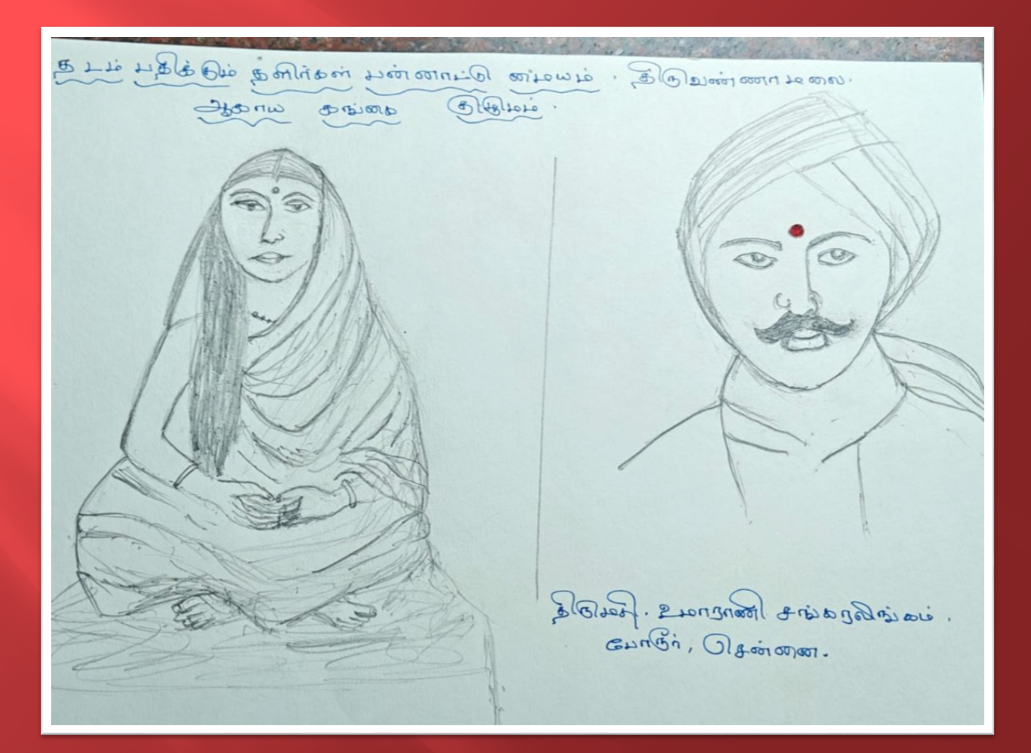 தடம் பதிக்கும் தளிர்கள் பன்னாட்டு மையம். திருவண்ணாமலை.
ஆகாய கங்கை குழுமம்.
திருமதி. உமாராணி சங்கரலிங்கம்.
போரூர், சென்னை.